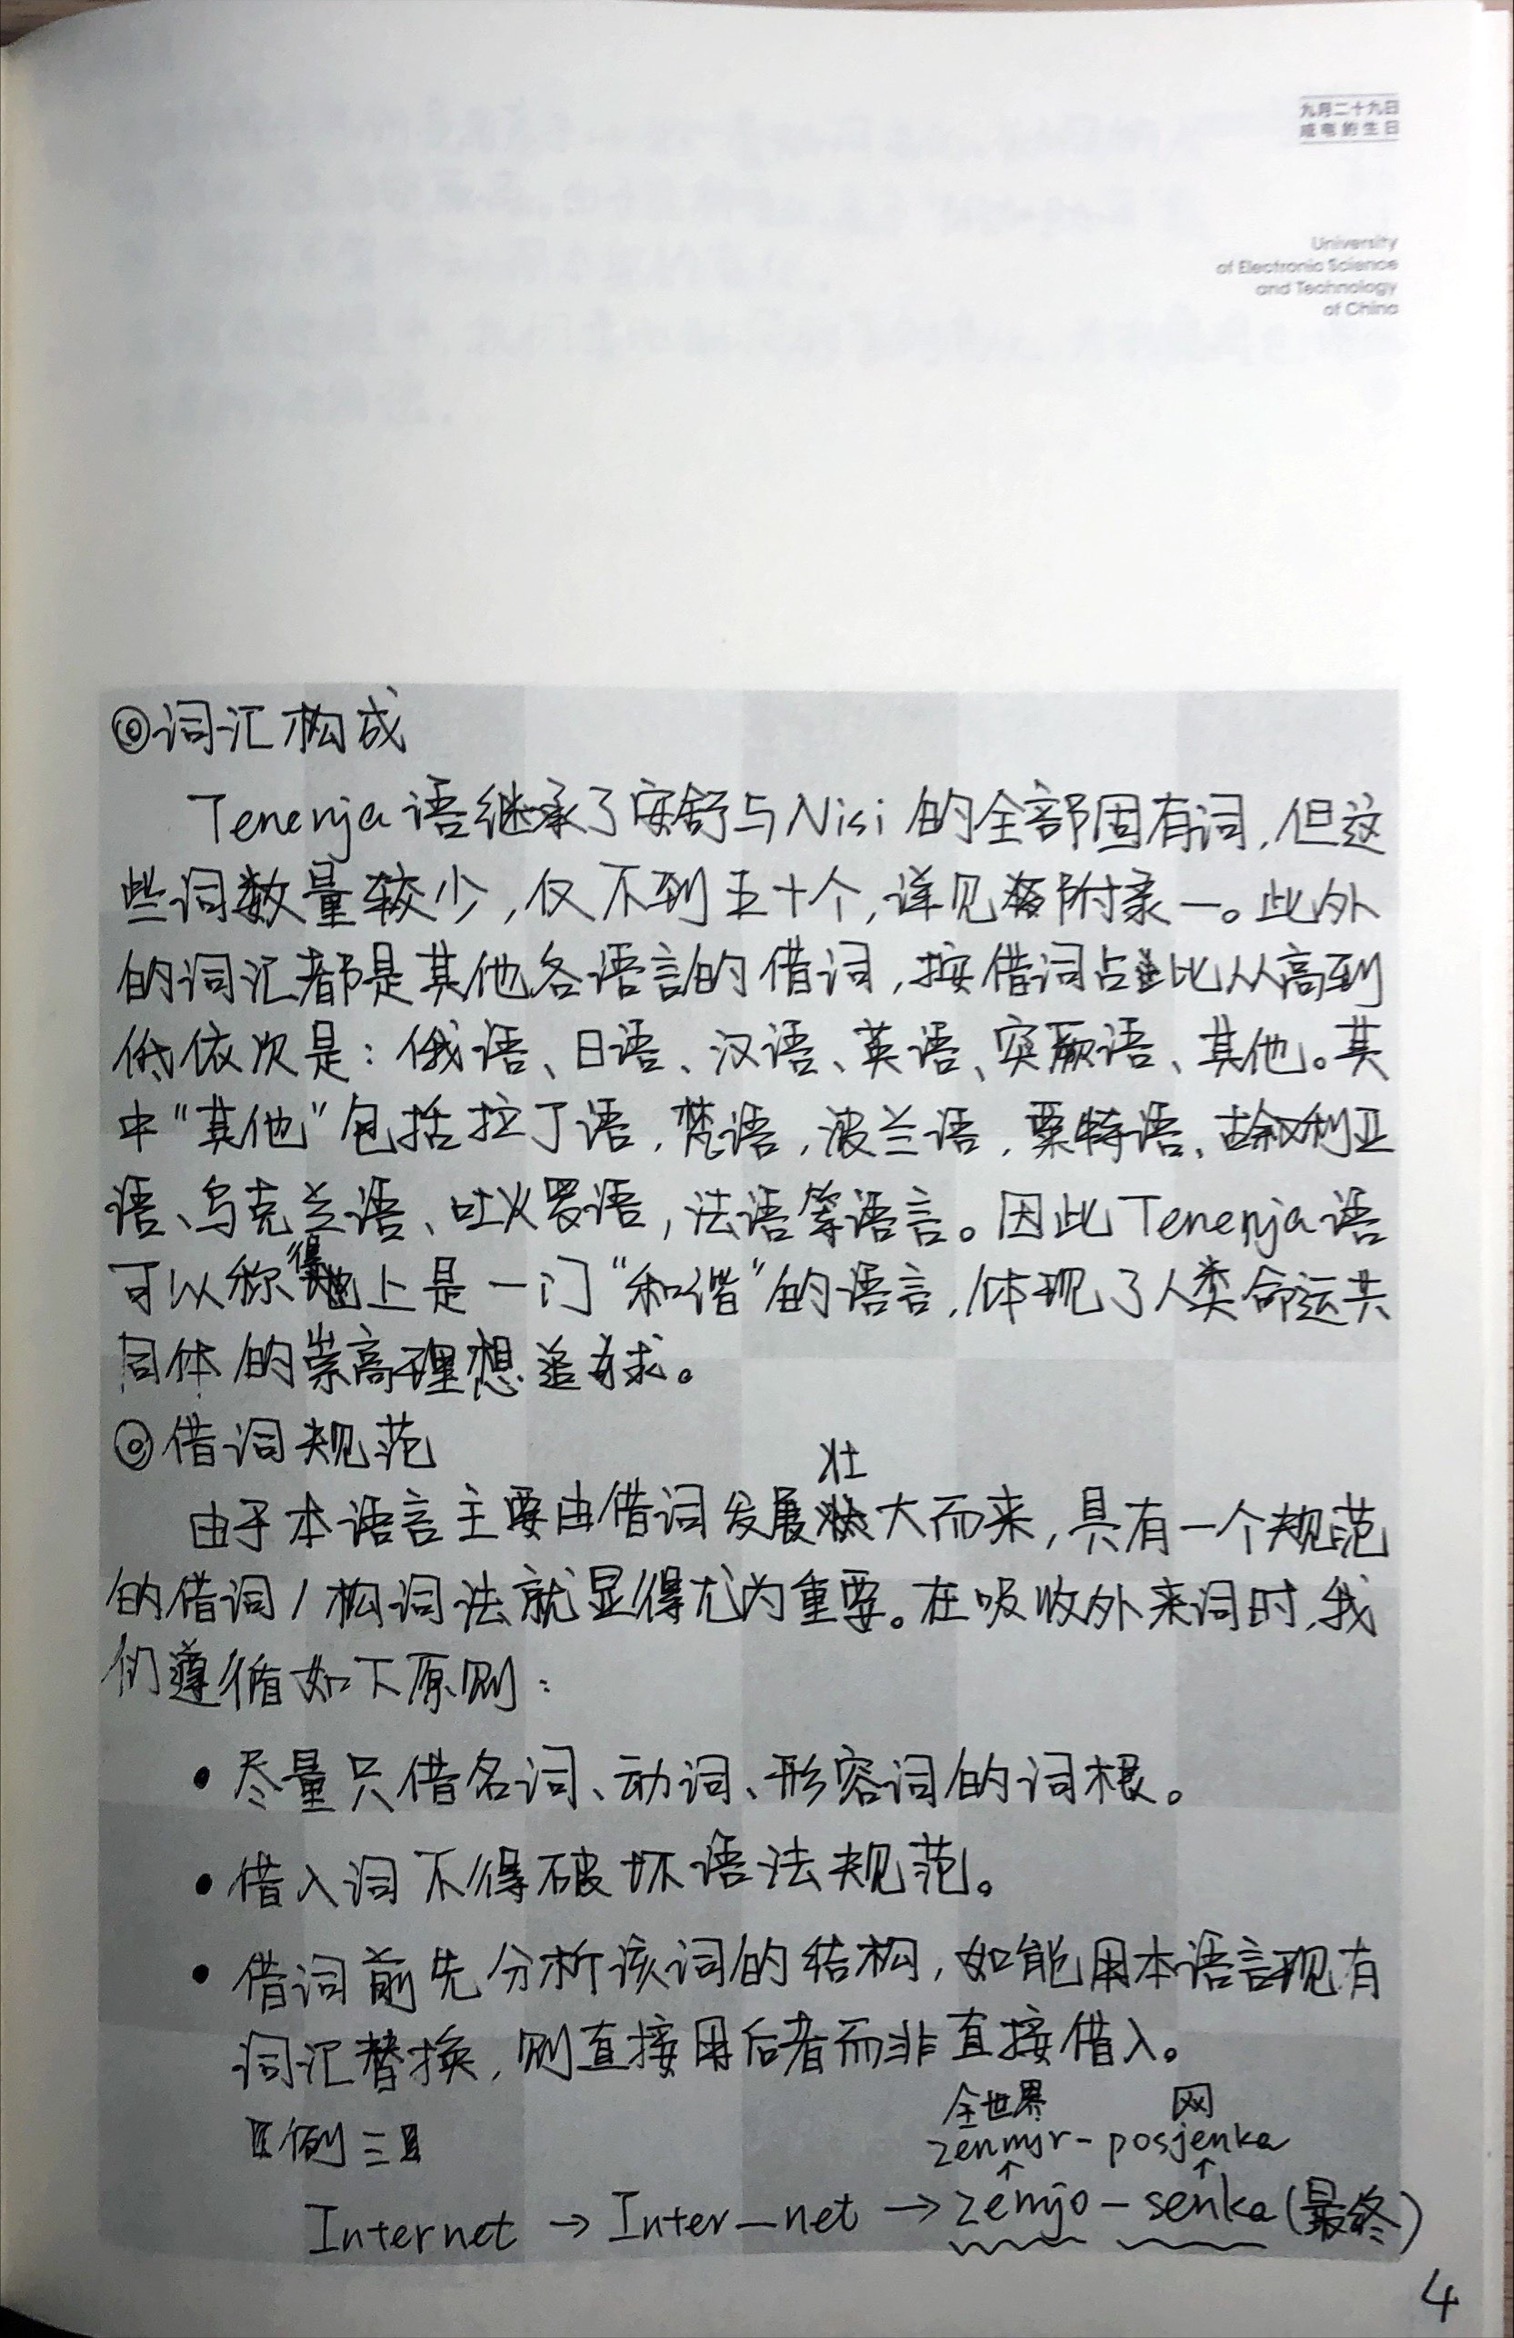 九月二十九日
成电的生日
University
of Electronic Science
and Technology
of China
◎词汇构成
Tenenja语继承了安舒与Nisi的全部固有词,但这
些词数量较少,仅不到五十个,详见附录一。此外
的词汇都是其他各语言的借词,按借词占比从高到
低依次是:俄语、日语、汉语、英语、突厥语、其他。其
中“其他”包括拉丁语,梵语,波兰语,粟特语、古叙利亚
语、乌克兰语、吐火罗语,法语等语言。因此Tenenja语
可以称得上是一门“和谐”的语言,体现了人类命运共
同体的崇高理想追求。
◎借词规范
由于本语言主要由借词发展壮大而来,具有一个规范
的借词/构词法就显得尤为重要。在吸收外来词时,我
们遵循如下原则:
•尽量只借名词、动词、形容词的词根。
•借入词不得破坏语法规范。
•借词前先分析该词的结构,如能用本语言现有
词汇替换,则直接用后者而非直接借入。
【例三】
全世界 网
zenmjr-posjenka
↑ ↑
Internet → Inter—net → zemjo—senka(最终)
4